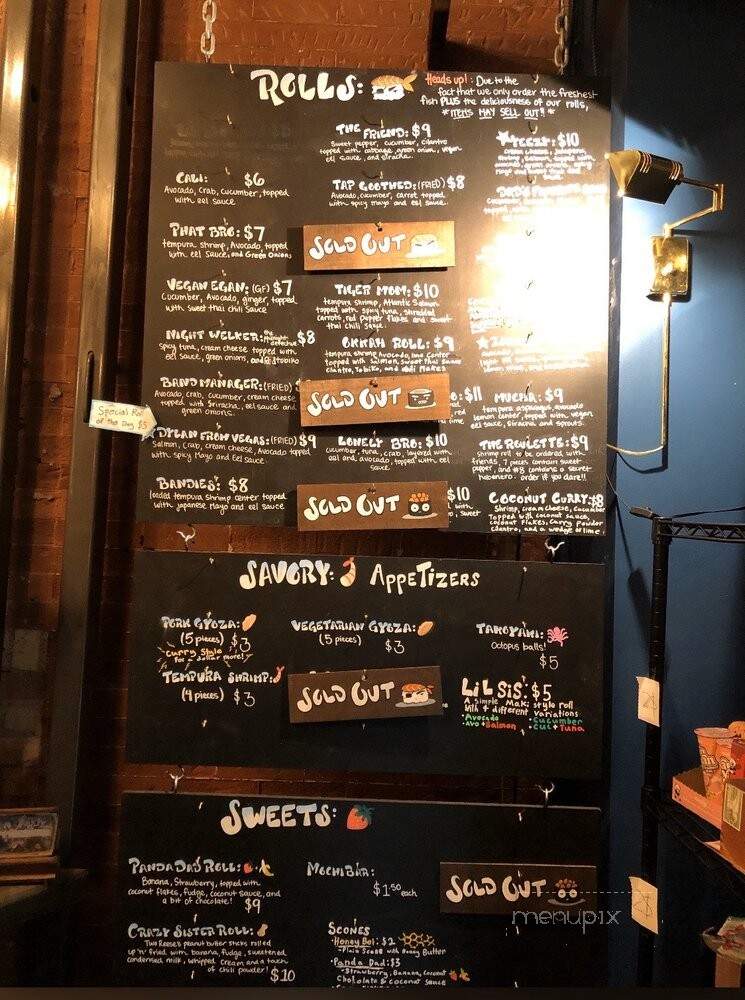 ROLLS:
Heads up! : Due to the
fact that we only order the freshest
fish PLUS the deliciousness of our rolls,
* ITEMS MAY SELL OUT!! *
CALI: $6
Avocado, Crab, cucumber, topped
with eel sauce
PHAT BRO: $7
tempura shrimp, Avocado, topped
with eel Sauce, and Green Onions
VEGAN EGAN: (GF) $7
Cucumber, Avocado, ginger, topped
with Sweet thai chili Sauce
NIGHT WELKER: $8
spicy tuna, cream cheese topped with
eel sauce, green onions, and tobiko
BAND MANAGER: (FRIED)
Avocado, crab, cucumber, cream cheese
topped with Sriracha, eel sauce and
green onions.
Special Roll
of the Day $5
DYLAN FROM VEGAS: (FRIED) $9
Salmon, crab, cream cheese, Avocado topped
with spicy Mayo and Eel sauce.
BANDIES: $8
loaded tempura shrimp center topped
with japanese Mayo and eel sauce
THE FRIEND: $9
Sweet pepper, cucumber, cilantro
topped with cabbage, green onion, vegan
eel sauce, and siracha.
TAP GOTHED: (FRIED) $8
Avocado, cucumber, carrot topped
with spicy mayo and eel sauce.
SOLD OUT
TIGER MOM: $10
tempura shrimp, Atlantic Salmon
topped with spicy tuna, shredded
carrots, red pepper flakes and sweet
thai chili Sauce.
OKKAH ROLL: $9
tempura shrimp Avocado, lime Center
topped with Salmon, sweet thai sauce
Cilantro, Tobiko, and chili flakes
SOLD OUT
LONELY BRO: $10
cucumber, tuna, crab, layered with
eel and avocado, topped with eel
sauce.
SOLD OUT
YEEZY: $10
O: $11
MUCHA: $9
tempura asparagus, avocado
lemon center, topped with vegan
eel sauce, siracha, and sprouts.
THE ROULETTE: $9
Shrimp roll to be ordered with
friends, 7 pieces contain sweet
pepper, and #8 contains a secret
habenero. order if you dare!!
$10
COCONUT CURRY: $8
Shrimp, cream cheese, Cucumber
Topped with coconut sauce,
coconut flakes, curry powder
cilantro, and a wedge of lime
SAVORY: APPETIZERS
PORK GYOZA:
(5 pieces) $3
Curry Style
for a dollar more!
VEGETARIAN GYOZA:
(5 pieces)
$3
TAKOYAKI:
Octopus balls!
$5
TEMPURA SHRIMP:
(4 pieces) $3
SOLD OUT
LIL SIS: $5
A simple Maki style roll
with 4 different variations
• Avocado
• Cucumber
• Avo + Salmon
• Cuc + Tuna
SWEETS:
PANDA DAD ROLL:
Banana, Strawberry, topped with
coconut flakes, fudge, coconut sauce, and
a bit of chocolate! $9
MOCHI BAR:
$1.50 each
SOLD OUT
CRAZY SISTER ROLL:
Two Reese's peanut butter sticks rolled
up 'n' fried with banana, fudge, sweetened
condensed milk, whipped cream and a touch
of chili powder! $10
SCONES
• Honey Boi: $2
- Plain Scone with Honey Butter
• Panda Dad: $3
- Strawberry, Banana, Coconut
Chocolate & coconut sauce
menupix